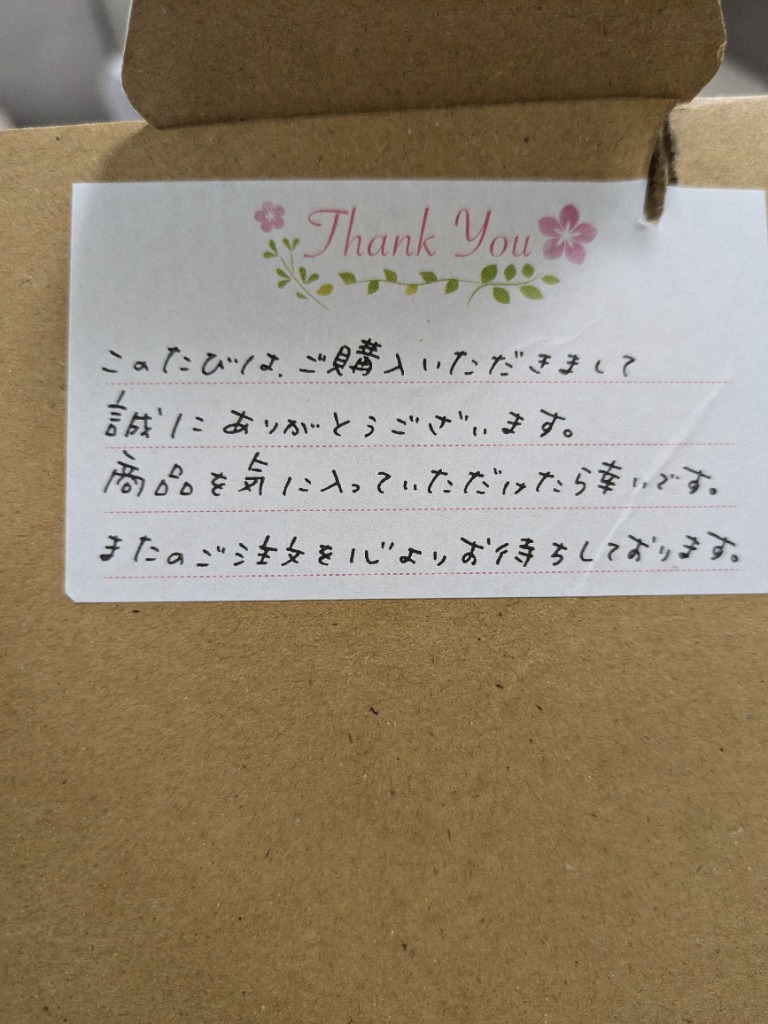 Thank You
このたびは、ご購入いただきまして
誠にありがとうございます。
商品を気に入っていただけたら幸いです。
またのご注文を心よりお待ちしております。